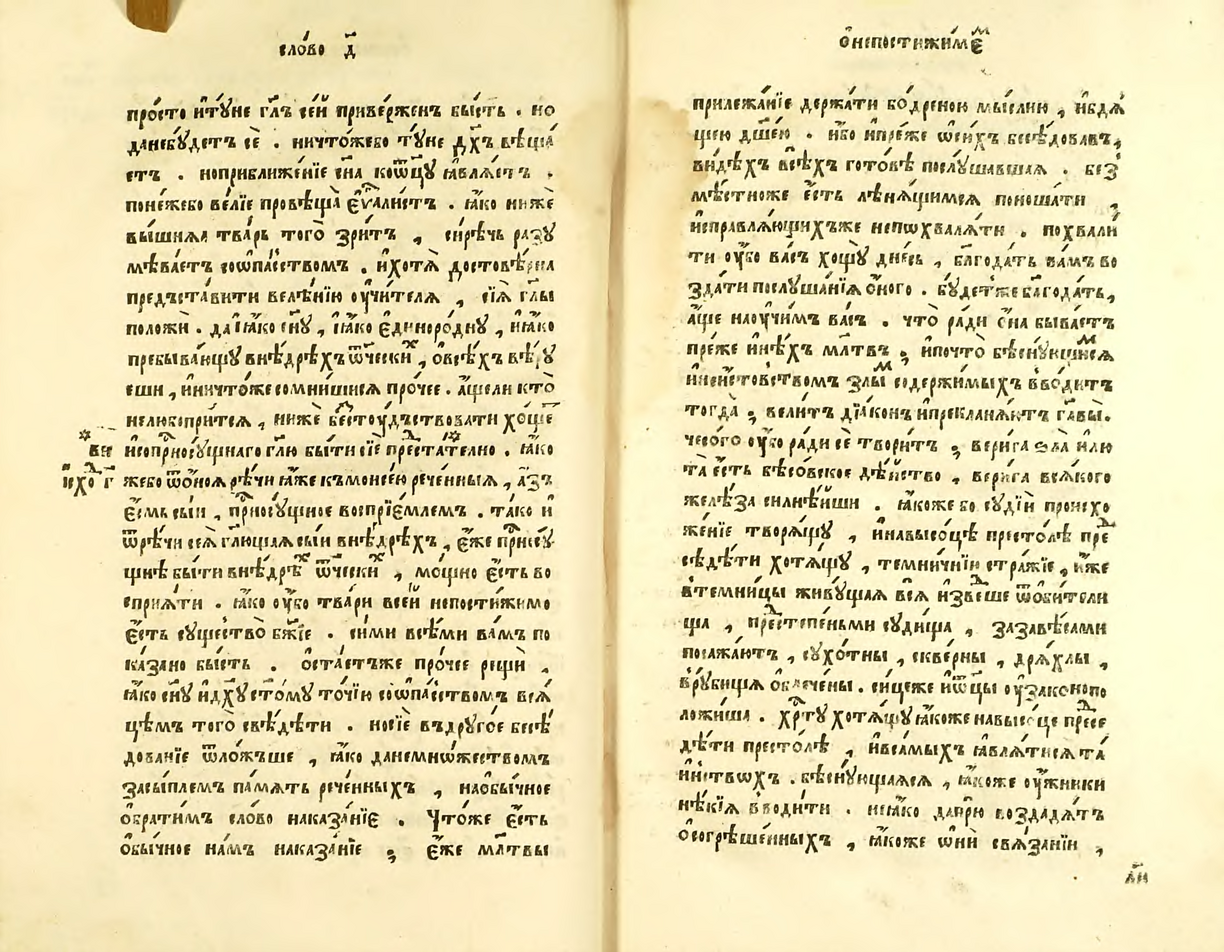 сло́во д҃
про́сто и҆тꙋ́не гл҃ъ се́й приве́рженъ бы́сть . но
данебꙋ́детъ сѐ . ничто́жебо тꙋ́не дх҃ъ вѣща́
етъ . ноприближе́нїе сн҃а коѿц҃ꙋ ꙗ҆влѧ́етъ .
поне́жебо ве́лїе провѣща̀ є҆ѵⷢ҇али́стъ . ꙗ҆́ко ниже
вы́шнѧѧ тва́рь того̀ зри́тъ , си́рѣчь разꙋ
мѣва́етъ соѡпа́ствомъ . и҆хотѧ̀ достовѣ́рна
предъста́вити велѣ́нїю ᲂу҆чи́телѧ , сїѧ̑ гл҃ы
положѝ . да ꙗ҆́ко сн҃ꙋ , ꙗ҆́ко є҆диноро́днꙋ , и҆ꙗ҆́ко
пребыва́ющꙋ внѣ́дрѣхъ ѿ́ческиⷯ , ѻ҆всѣ́хъ вѣ́рꙋ
еши , иничто́же сомни́шисѧ про́чее . а҆́щели кто̀
нелюбопри́тсѧ , ниже бестꙋ́дъствовати хо́ще
и҆соприсꙋ́щнаго глю̀ бы́ти сїѐ преⷣста́телно . ꙗ҆́ко
вне
и҆схоⷣ г҃
жебо ѿо́ноѧ рѣ́чи ꙗ҆́же къмоисе́ю рече́нныѧ , а҆́зъ
є҆́смь сы́и , приⷭ҇носꙋ́щное воспрїе́млемъ . та́ко и҆
ѿрѣ́чи сеѧ̀ глю́щаѧ сы́и внѣ́дрѣхъ , є҆́же приⷭ҇нсꙋ́
щнѣ бы́ти внѣ́дрѣⷯ ѿ́ческиⷯ , мо́щно є҆́сть во
спрїѧ́ти . ꙗ҆́ко ᲂу҆́бо тва́ри все́й непостижи́мо
є҆́сть сꙋщество̀ бж҃їе . си́ми всѣ́ми ва́мъ по
ка́зано бы́сть . ѻ҆ста́етъже про́чее рещѝ ,
ꙗ҆́ко сн҃ꙋ и҆дх҃ꙋ ст҃о́мꙋ то́чїю соѡпа́ствомъ всѧ́
цѣмъ того̀ свѣ́дѣти . носїѐ въдрꙋго́е бесѣ́
дованїе ѿло́жъше , ꙗ҆́ко данемно́жествомъ
засы́племъ па́мѧть рече́нныхъ , наѻбы́чное
ѻ҆брати́мъ сло́во наказа́нїе . Что́же є҆́сть
ѻ҆бы́чное на́мъ наказа́нїе ; є҆́же мл҃твы
ѻ҆непостижи́мѣⷨ
прилежа́нїе держа́ти бо́дреною мы́слию , и҆бдѧ́
щею дш҃е́ю . и҆́бо и҆пре́же ѡ҆си́хъ бесѣ́довавъ ,
ви́дѣхъ всѣ́хъ гото́вѣ послꙋ́шавшаѧ . без
мѣ́стноже є҆́сть лѣнѧ́щимсѧ поноша́ти ,
и҆справлѧ́ющихъже непохвалѧ́ти . похвали
ти ᲂу҆́бо ва́съ хощꙋ̀ дне́сь , блгода́ть ва́мъ во
зда́ти послꙋша́нїѧ ѻ҆́ного . бꙋ́детже блгода́ть ,
а҆́ще наᲂу҆чи́мъ ва́съ . что̀ ра́ди ѻ҆на̀ быва́етъ
пре́же и҆нѣ́хъ мл҃твъ ; и҆почто̀ бѣснꙋ́ющиⷨсѧ
и҆неи́стовствомъ злы́ⷨ содержи́мыхъ вво́дитъ
тогда̀ ; вели́тъ дїа́конъ и҆преклонѧ́ютъ гла́вы .
чесо́го ᲂу҆́бо ра́ди сѐ твори́тъ ; вери́га ѕла̀ и҆лю
та̀ є҆́сть бѣсо́вское дѣ́йство , вери́га всѧ́кого
желѣ́за силнѣ́йши . ꙗ҆́коже бо сꙋдїѝ происхо
же́нїе творѧ́щꙋ , и҆навысо́цѣ престо́лѣ преⷣ
сѣ́дѣти хотѧ́щꙋ , темни́чнїи стра́жїе , и҆́же
втемни́цы живꙋ́щаѧ всѧ̀ и҆зве́дше ѿоби́тели
ща , преⷣстепе́ньми сꙋди́ща , зазавѣ́сами
посажа́ютъ , сꙋхо́тны , скве́рны , дрѧ́хлы ,
врꙋ́бища ѻ҆блече́ны . си́цеже и҆ѿцы̀ ᲂу҆законопо
ложи́ша . хрⷭ҇тꙋ̀ хотѧ́щꙋ ꙗ҆́коже навысо́це преⷣсе
дѣ́ти престо́лѣ , и҆вса́мыхъ ꙗ҆влѧ́тисѧ та́
и҆нствохъ . бѣснꙋ́ющаѧсѧ , ꙗ҆́коже ᲂу҆́жники
нѣ́кїѧ вводи́ти . неꙗ҆́ко да прю̀ воздадѧ́тъ
ѻ҆согрѣше́нныхъ , ꙗ҆́коже ѡ҆нѝ свѧ́занїи ,